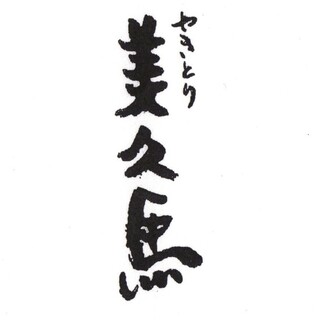 やきとり
美久馬